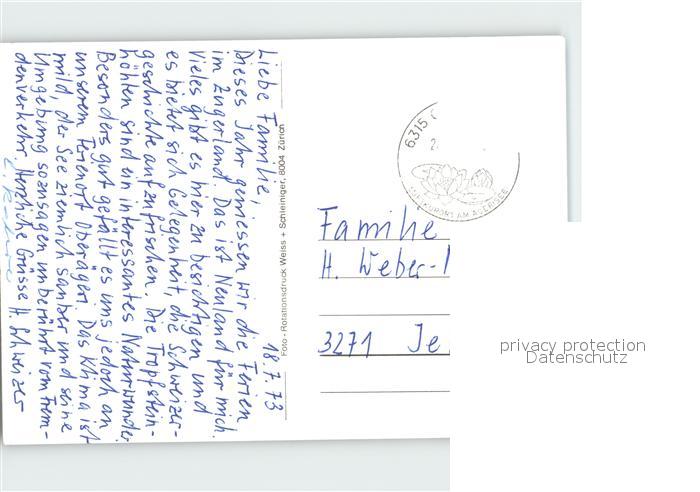 18.7.73
Liebe Familie,
Dieses Jahr geniessen wir die Ferien
im Zugerland. Das ist Neuland für mich.
Vieles gibt es hier zu besichtigen und
es bietet sich Gelegenheit, die Schweizer-
geschichte aufzufrischen. Die Tropfstein-
höhlen sind ein interessantes Naturwunder.
Besonders gut gefällt es uns jedoch an
unserem Ferienort Oberägeri. Das Klima ist
mild, der See ziemlich sauber und seine
Umgebung sozusagen unberührt vom Frem-
denverkehr. Herzliche Grüsse H. Schweizer
Foto - Rotationsdruck Weiss + Schleiniger, 8004 Zürich
6315
LUFTKURORT AM AEGERISEE
Familie
H. Weber-
3271 Je
privacy protection
Datenschutz